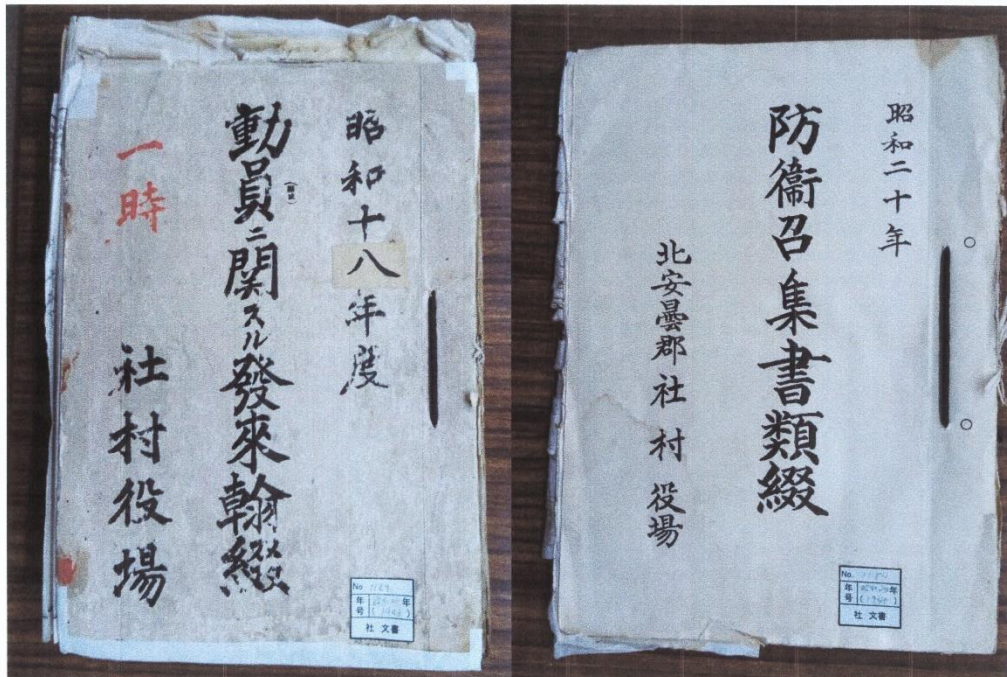 昭和十八年度
動員ニ関スル發來翰綴
一時
社村役場
No.
年号
年
社 文書
昭和二十年
防衞召集書類綴
北安曇郡 社村役場
No.
年号
年
社 文書